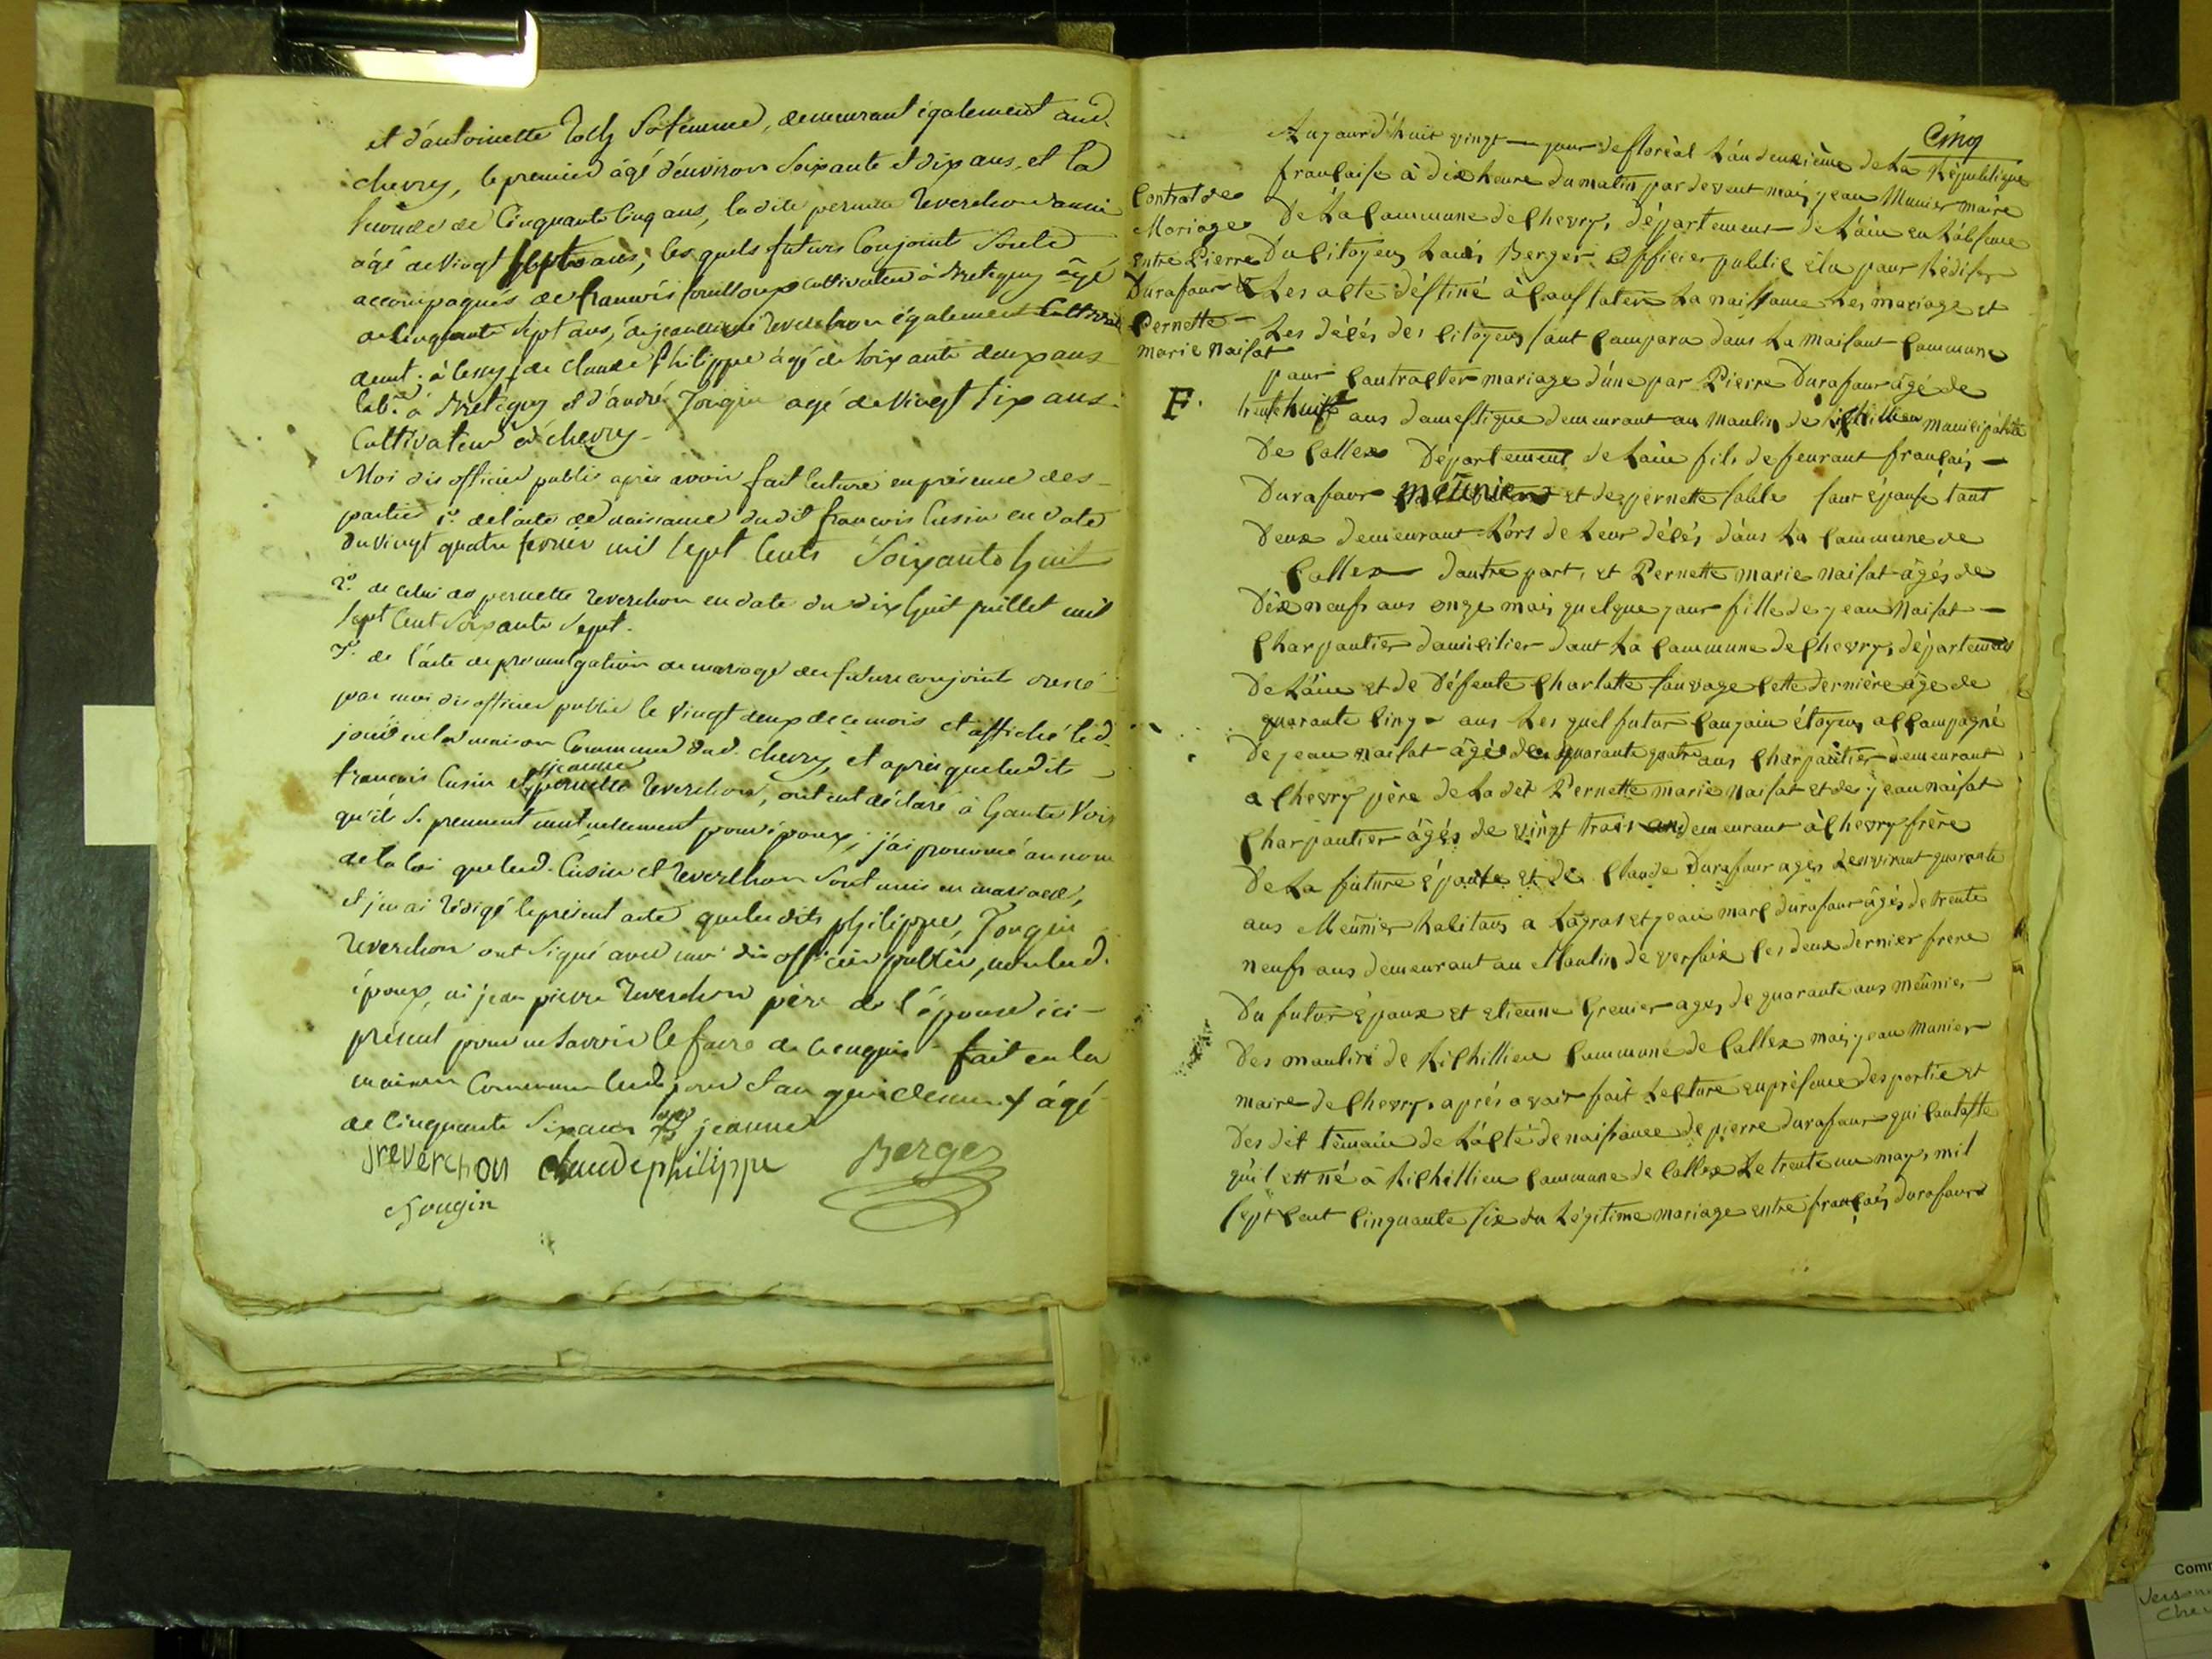 et d'antoinette Roch Sa femme, demeurant également aud.
chevry, le premier âgé d'environ Soixante et dix ans, et la
seconde de Cinquante Cinq ans, la dite pernette Reverchon aussi
âgé de vingt Septs ans, les quels futurs Conjoints Sonts
accompagnés de francois cultivateur à Bretigny âgé
de Cinquante Sept ans, de Reverchon également
demt. à de claude Philippe âgé de Soixante deux ans
labr. à Bretigny et d'andré Jougin agé de vingt Six ans
Cultivateur à chevry
Moi dis officier public après avoir fait lecture en présence des
parties 1º. de l'acte de naissance dudit francois Cusin en date
du vingt quatre fevrier mil Sept Cents Soixante huit
2º. de celui de pernette reverchon en date du dix huit juillet mil
Sept Cent Soixante Sept.
3º. de l'acte de promulgation de mariage des futurs conjoints dressé
par moi dis officier public le vingt deux de ce mois et affiché led.
jour en la maison Commune dud. chevry, et après que ledits
jeanne
francois Cusin et pernette Reverchon, ont eut déclaré à haute Voix
qu'ils Se prennent mutuelement pour époux, j'ai prononcé au nom
de la loi que led. Cusin et Reverchon Sont unis en mariage,
et j'en ai rédigé le présent acte que les dits philippe, Jougin
Reverchon ont Signé avec moi dis officier public, non led.
époux, ni jean pierre Reverchon père de l'épouse ici
présent pour ne Savoir le faire de ce enquis fait en la
maison Commune led. jour et an que dessus âgé
de Cinquante Six ans jeanne
jreverchon claude philippe Berger
Jougin
Cinq
Contrat de
Mariage
Entre Pierre
Durafour et
Pernette
marie naisat
F.
Aujourd'huit vingt jour de floréal L'an deuxième de La République
française à dix heure du matin par devent mois jean Munier maire
De La Commune de Chevry, département de L'ain en L'absence
Du Citoyen Louis Berger Officier public élu pour Rédiger
Les acte déstiné à Constater La naissance Les mariage et
Les décés des Citoyens sont Comparu dans La maisont Commune
pour Contracter mariage d'une par Pierre Durafour âgé de
trente huit ans domestique demeurant au Moulin de Municipalité
De Collex Département de Lain fils de feu rant français
Durafour meûnier et de pernette Sable sont épousé tout
Deux demeurant Lors de Leur décés dans La Commune de
Collex dautre part, et Pernette marie naisat âgés de
Dix neufs ans onze mois quelque jour fille de jean naisat
Charpantier domicilier dant La Commune de Chevry, département
De L'ain et de Défente Charlotte Sauvage Cette dernière âge de
quarante Cinq ans Les quel futur Conjoin étoyen accompagné
De jean naisat âgés de quarante quatre ans Charpantier demeurant
a Chevry père de La dit Pernette marie naisat et de jean naisat
Charpantier âgés de vingt trois an demeurant à Chevry frère
De La future épouse et de Claude Durafour ages denvirant quarante
ans Meûnier habitans a Lagras et jean marc durafour âgés de trente
neufs ans demeurant au Moulin de versoix les deux dernier frere
Du futur épouse et Etienne Grenier ages de quarante ans meûnier
Des moulins de Richillien Commune de Collex mois jean Munier
maire de Chevry, aprés avoir fait Lecture en présence des partie et
Des dit témoin de L'acté de naissance de pierre durafour qui Constate
qu'il ett né à Richillien Commune de Collex Le trente un may, mil
Sept Cent Cinquante Six du Légitime mariage entre françois durafour
Comm
Cher